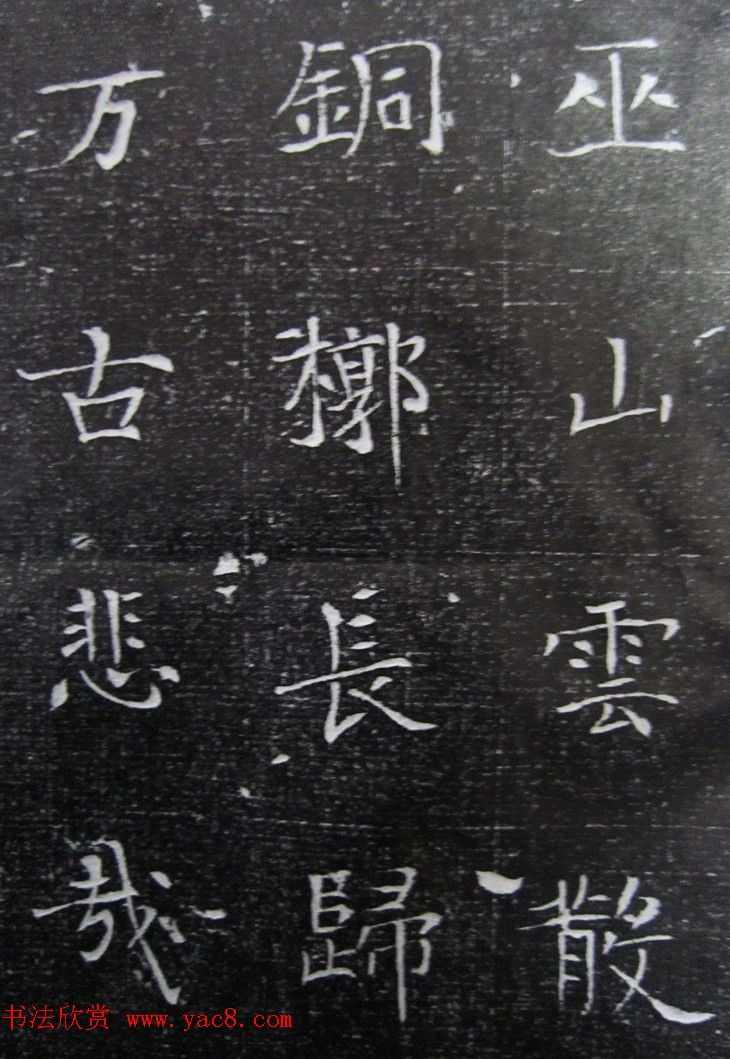 巫山雲散
銅槨長歸
万古悲哉
书法欣赏 www.yac8.com